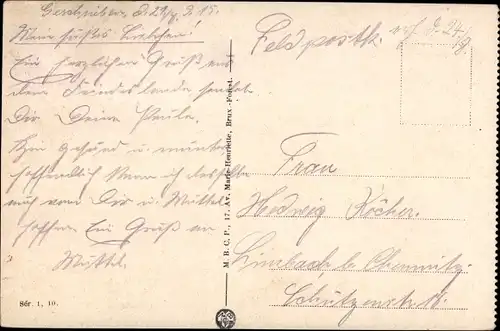 Geschrieben, d. 24. 3. 15.
Mein süßes Liebchen!
Ein herzlichen Gruß aus
dem Feindesland sendet
Dir Deine Paula.
Bin gesund u. munter,
hoffentlich kann ich dasselbe
auch von Dir u. Muttel
hoffen. Ein Gruß an
Muttel.
Sér. 1, 10.
M. B. C. P., 17, Av. Marie-Henriette, Brux.-Forest.
Feldpostk.
Frau
Hedwig Köcher.
Limbach b. Chemnitz
Schützenstr. 8.